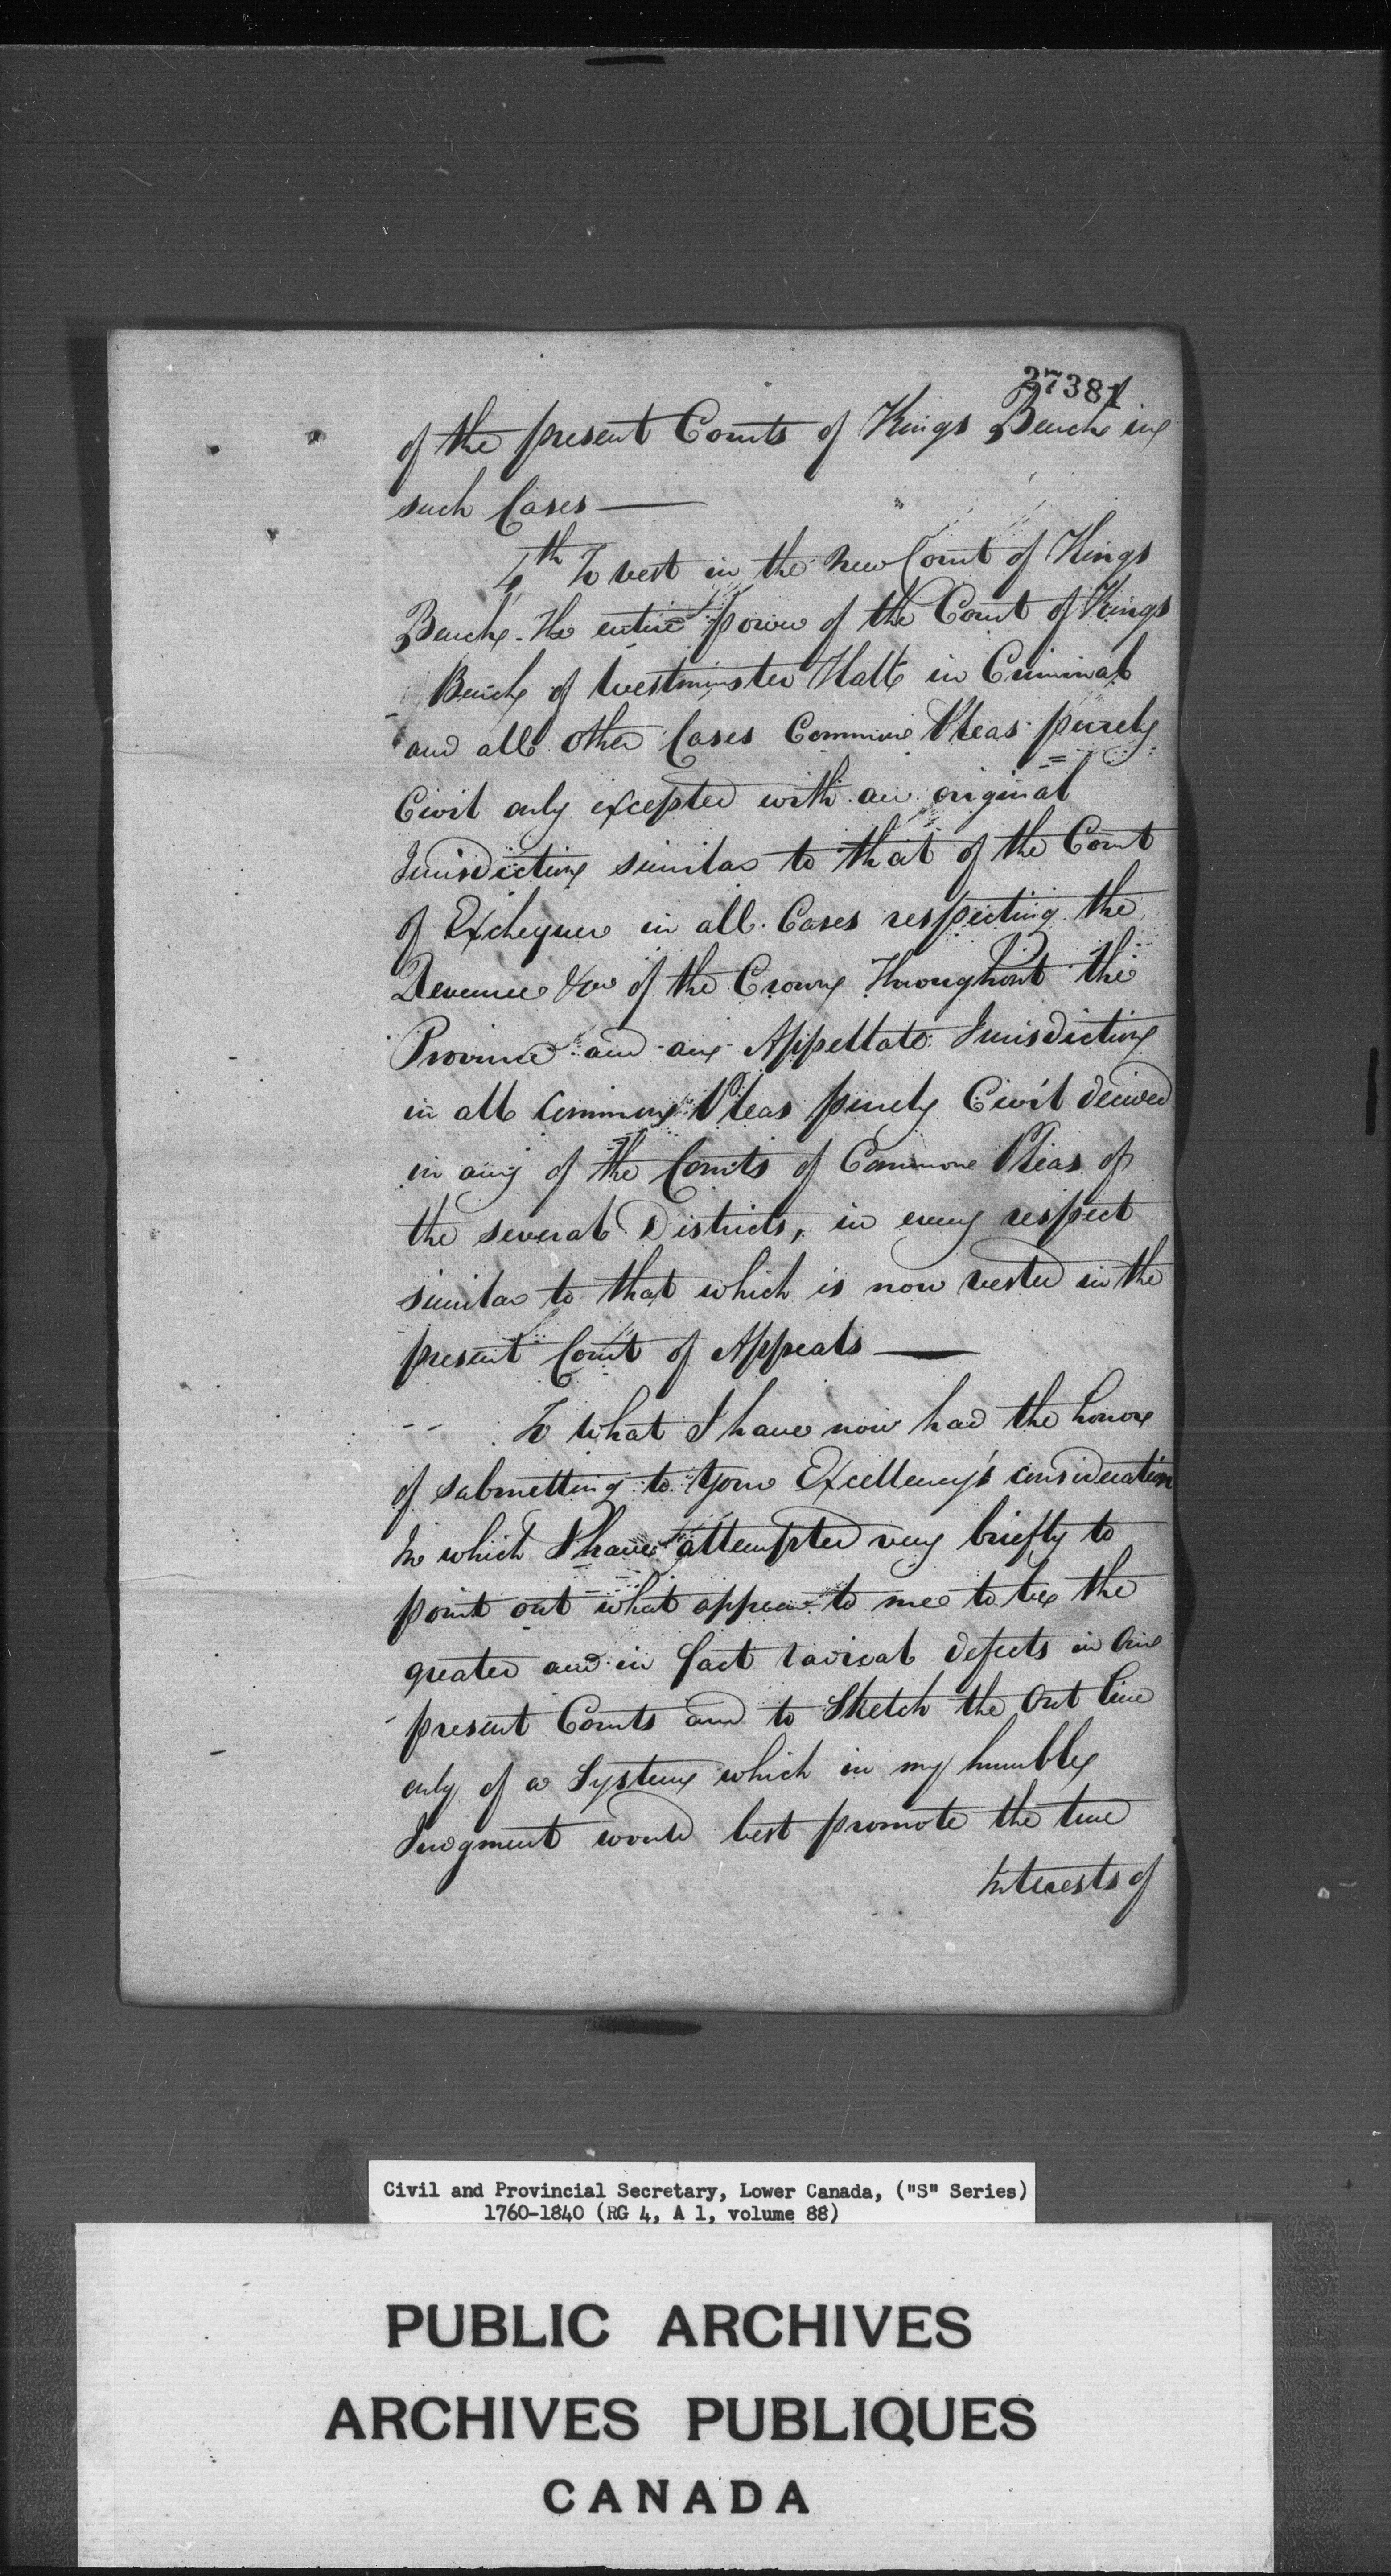 27381
of the present Courts of Kings Bench in
such Cases —
4th To vest in the New Court of Kings
Bench. The entire power of the Court of Kings
Bench of Westminster Hall in Criminal
and all other Cases Common Pleas purely
Civil only excepted with an original
Jurisdiction similar to that of the Court
of Exchequer in all Cases respecting the
Revenue &ca of the Crown Throughout the
Province and an Appellate Jurisdiction
in all Common Pleas purely Civil decided
in any of the Courts of Common Pleas of
the several Districts, in every respect
similar to that which is now vested in the
present Court of Appeals —
To what I have now had the honor
of submitting to Your Excellency's consideration
In which I have attempted very briefly to
point out what appear to me to be the
greater and in fact radical defects in Our
present Courts and to Sketch the Out line
only of a System which in my humble
Judgment would best promote the true
Interests of
Civil and Provincial Secretary, Lower Canada, ("S" Series)
1760-1840 (RG 4, A 1, volume 88)
PUBLIC ARCHIVES
ARCHIVES PUBLIQUES
CANADA